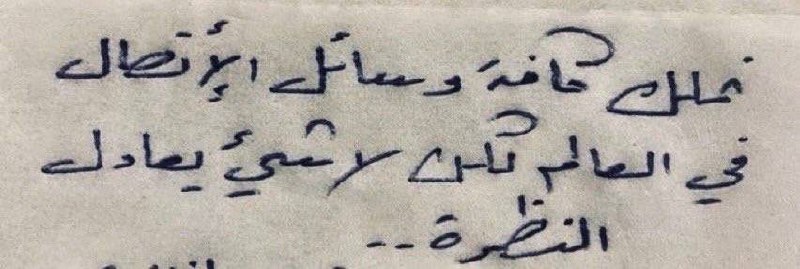 نملك كافة وسائل الإتصال
في العالم لكن لا شيئ يعادل
النظرة..